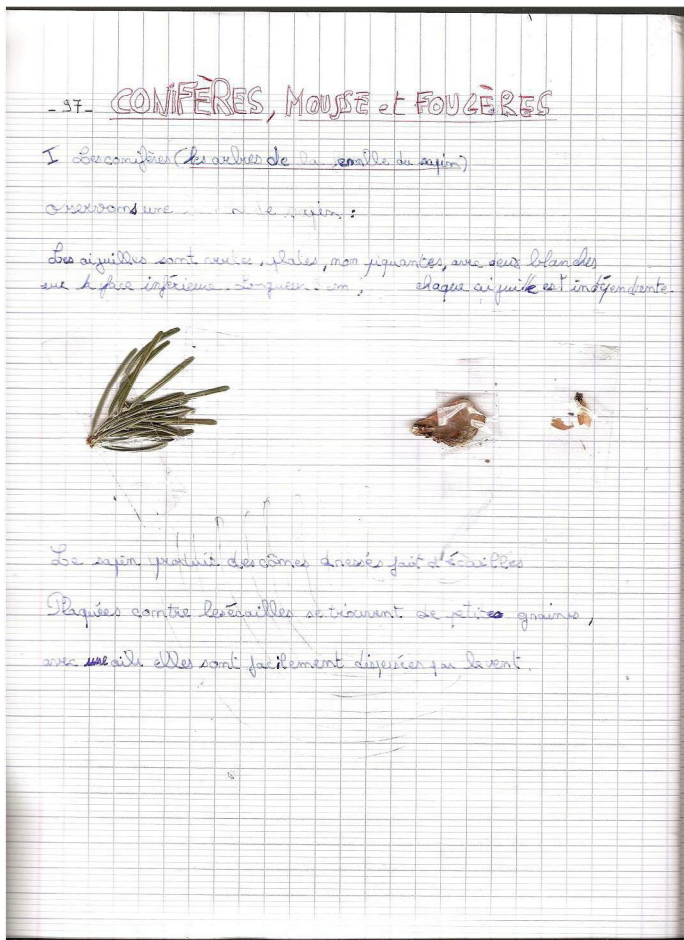 -97- CONIFÈRES, MOUSSE et FOUGÈRES
I Les conifères (les arbres de la famille du sapin)
une de :
Les aiguilles sont plates, non piquantes, avec deux blanches
sur la face inférieure. chaque aiguille est indépendante.
Le sapin produit des cônes dressés fait d'écailles
Plaquées contre les écailles se trouvent de petites graines,
avec une aile elles sont facilement dispersées par le vent.